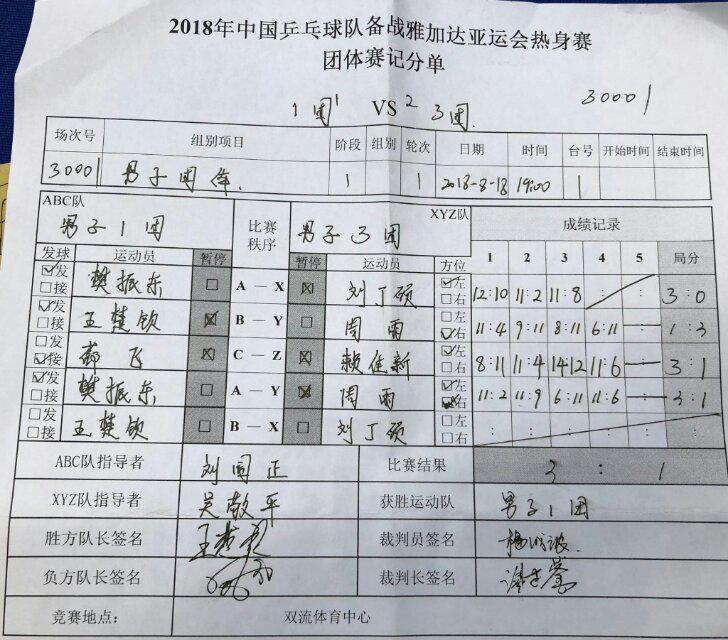 2018年中国乒乓球队备战雅加达亚运会热身赛
团体赛记分单
1团 1 VS 2 3团 30001
场次号 组别项目 阶段 组别 轮次 日期 时间 台号 开始时间 结束时间
30001 男子团体 1 1 2018-8-18 19:00 1
ABC队 男子1团 比赛秩序 XYZ队 男子3团 成绩记录
发球 运动员 暂停 暂停 运动员 方位 1 2 3 4 5 局分
发 接 樊振东 A — X 刘丁硕 左 右 12:10 11:2 11:8 : : 3:0
发 接 王楚钦 B — Y 周雨 左 右 11:4 9:11 8:11 6:11 : 1:3
发 接 郝飞 C — Z 赖佳新 左 右 8:11 11:4 14:12 11:6 : 3:1
发 接 樊振东 A — Y 周雨 左 右 11:2 11:9 6:11 11:6 : 3:1
发 接 王楚钦 B — X 刘丁硕 左 右 : : : : : :
ABC队指导者 刘国正 比赛结果 3 : 1
XYZ队指导者 吴敬平 获胜运动队 男子1团
胜方队长签名 裁判员签名
负方队长签名 裁判长签名
竞赛地点： 双流体育中心